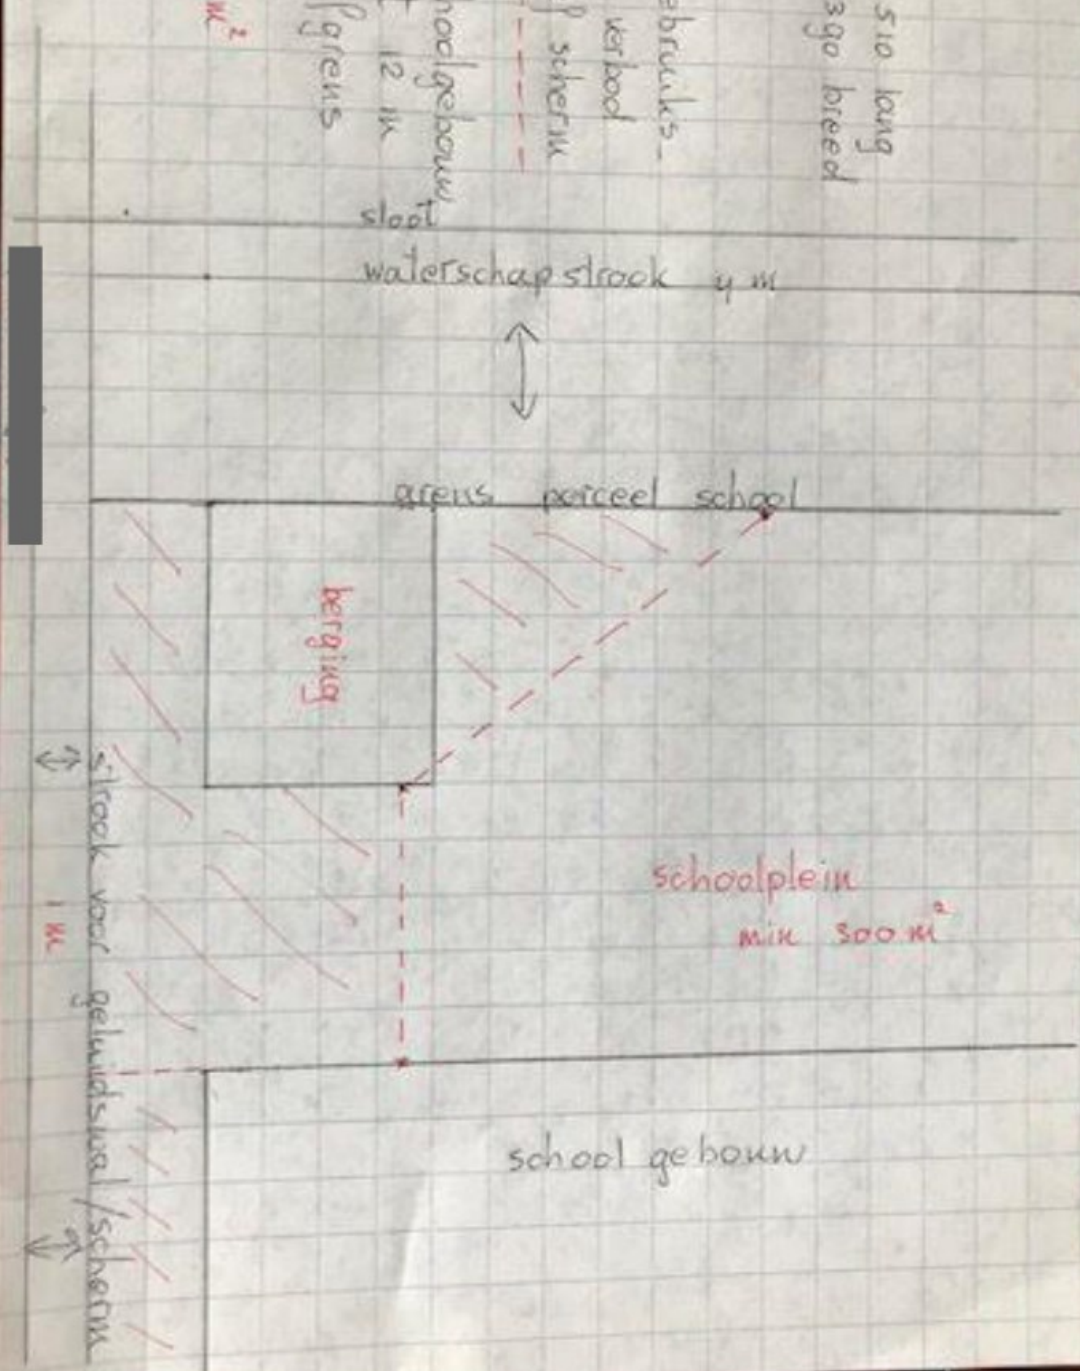 510 lang
390 breed
ebruiks-
verbod
scherm
hoolgebouw
12 m
grens
m²
sloot
waterschap strook 4 m
grens perceel school
berging
schoolplein
min 300 m²
strook voor geluidswal/scherm
1 m
school gebouw